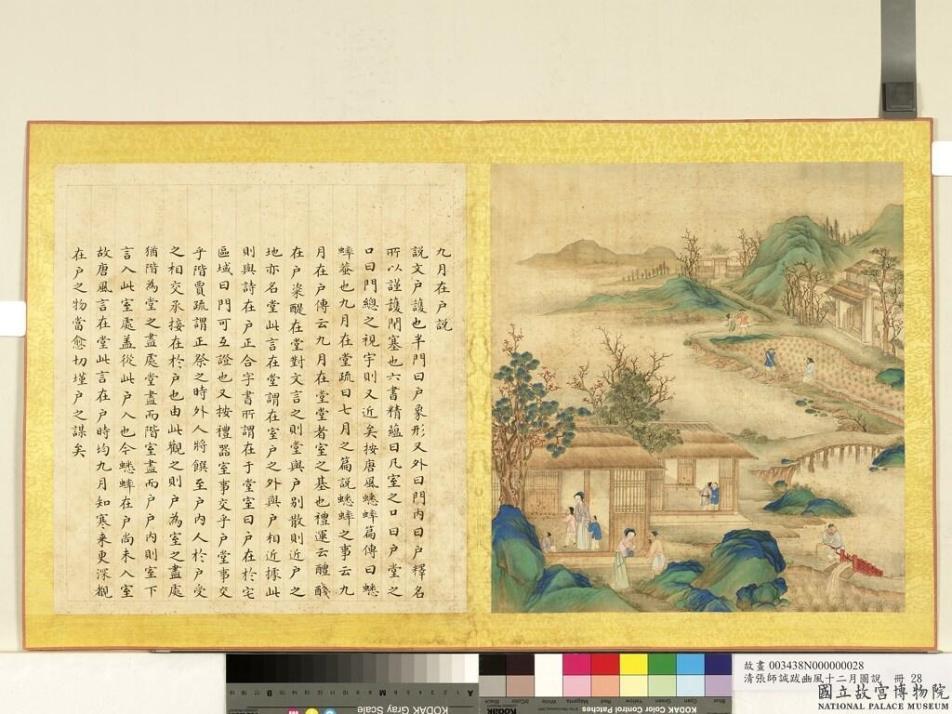 九月在户説
説文户護也半門曰户象形又外曰門内曰户釋名
所以謹護閉塞也六書精蘊曰凡室之口曰户堂之
口曰門總之視字則又近矣按唐風蟋蟀篇傳曰蟋
蟀蛬也九月在堂疏曰七月之篇説蟋蟀之事云九
月在户傳云九月在堂堂者室之基也禮運云醴醆
在户粢醍在堂對文言之則堂與户别散則近户之
地亦名堂此言在堂謂在室户之外與户相近據此
則與詩在户正合字書所謂在于堂室曰户在於宅
區域曰門可互證也又按禮器室事交乎户堂事交
乎階賈疏謂正祭之時外人將饌至户内人於户受
之相交承接在於户也由此觀之則户為室之盡處
猶階為堂之盡處堂盡而階室盡而户户内則室下
言入此室處盖從此户入也今蟋蟀在户尚未入室
故唐風言在堂此言在户時均九月知寒來更深觀
在户之物當愈切墐户之謀矣
故畫 003438N000000028
清張師誠跋豳風十二月圖說 冊 28
國立故宮博物院
NATIONAL PALACE MUSEUM
KODAK Gray Scale
KODAK Color Control Patches